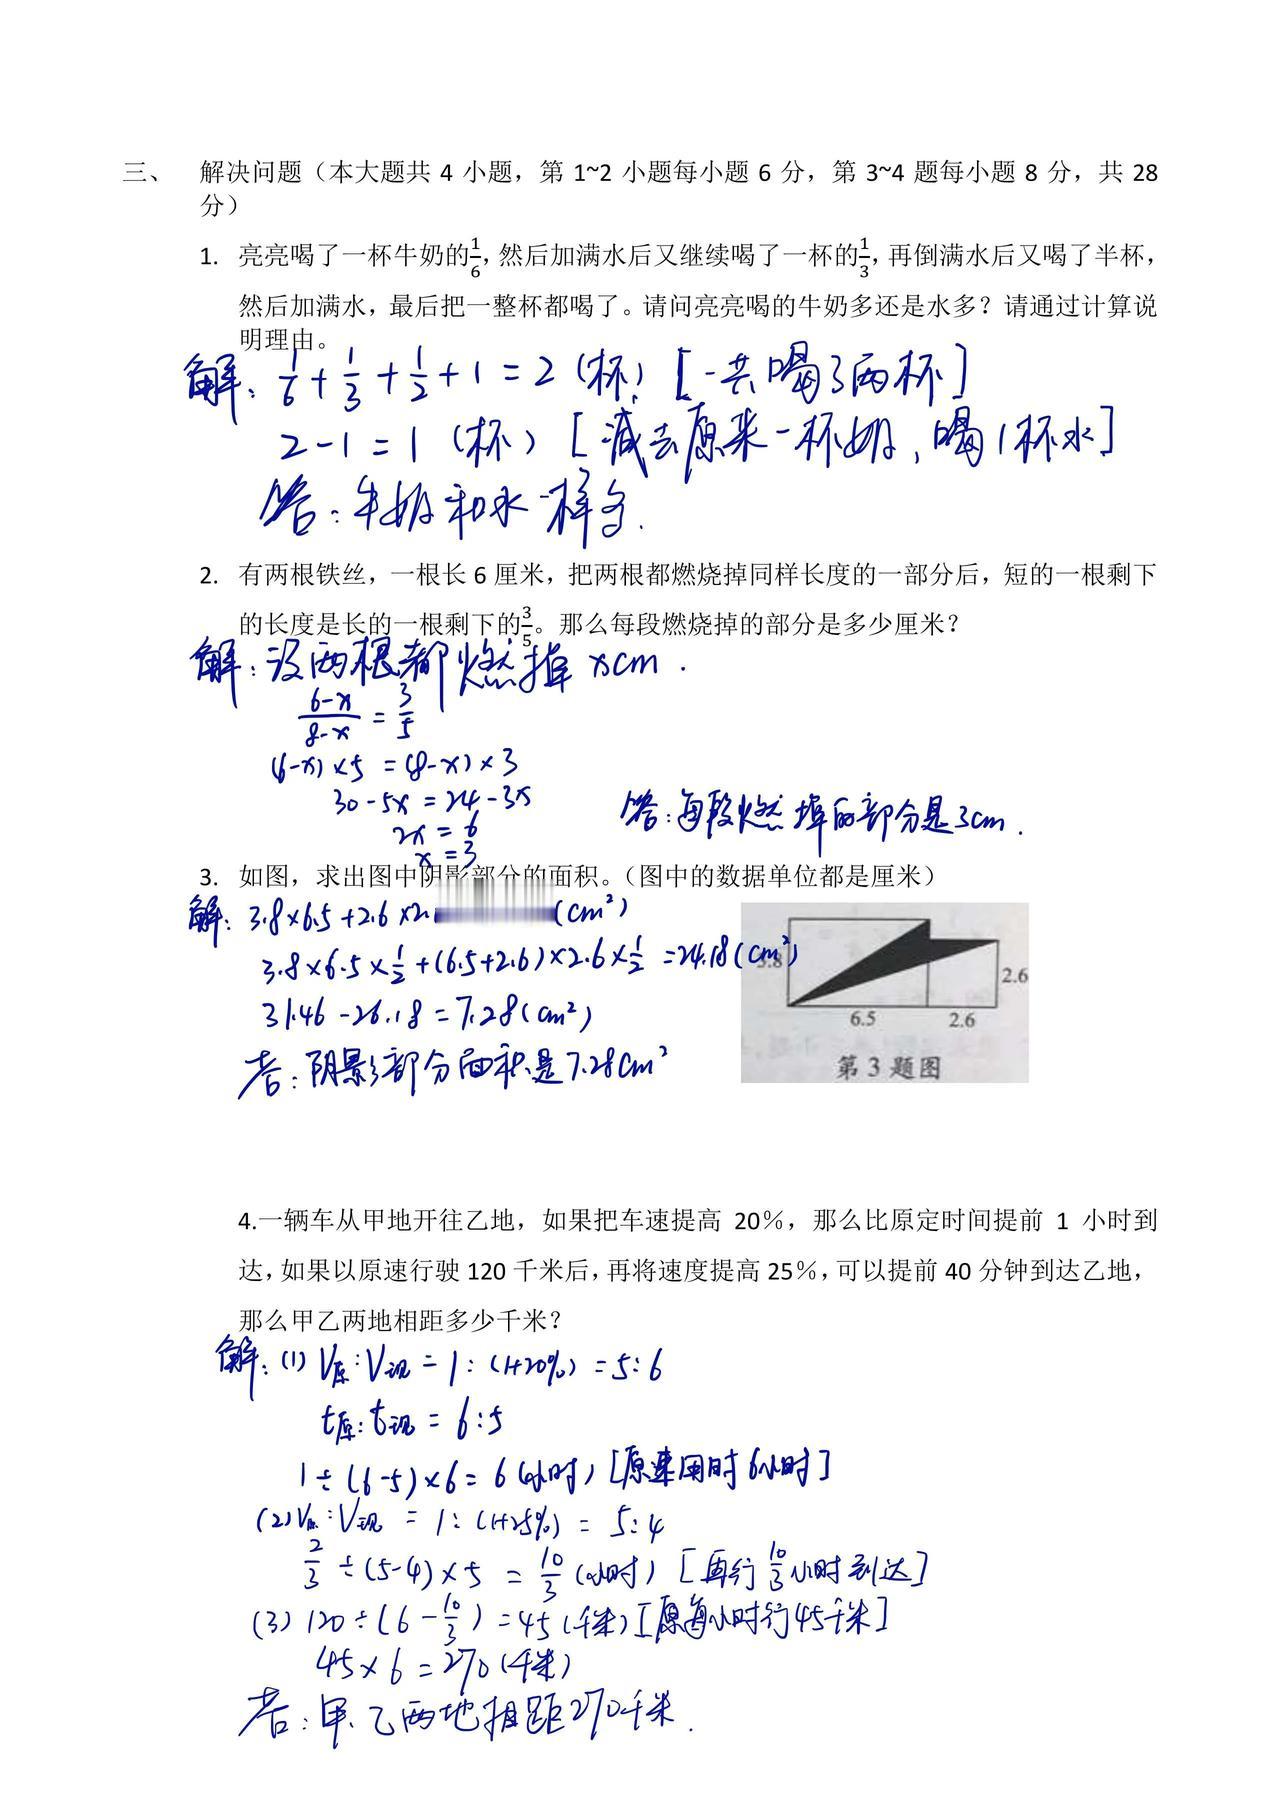 三、 解决问题（本大题共 4 小题，第 1~2 小题每小题 6 分，第 3~4 题每小题 8 分，共 28
分）
1. 亮亮喝了一杯牛奶的1/6，然后加满水后又继续喝了一杯的1/3，再倒满水后又喝了半杯，
然后加满水，最后把一整杯都喝了。请问亮亮喝的牛奶多还是水多？请通过计算说
明理由。
解：1/6+1/3+1/2+1=2（杯）[一共喝了两杯]
2-1=1（杯）[减去原来一杯奶，喝1杯水]
答：牛奶和水一样多.
2. 有两根铁丝，一根长 6 厘米，把两根都燃烧掉同样长度的一部分后，短的一根剩下
的长度是长的一根剩下的3/5。那么每段燃烧掉的部分是多少厘米？
解：设两根都燃掉 xcm.
(6-x)/(8-x)=3/5
(6-x)×5=(8-x)×3
30-5x=24-3x
2x=6
x=3
答：每段燃掉的部分是3cm.
3. 如图，求出图中阴影部分的面积。（图中的数据单位都是厘米）
解：3.8×6.5+2.6×2. (cm²)
3.8×6.5×1/2+(6.5+2.6)×2.6×1/2=24.18(cm²)
31.46-26.18=7.28(cm²)
答：阴影部分面积是7.28cm²
3.8
2.6
6.5 2.6
第 3 题图
4.一辆车从甲地开往乙地，如果把车速提高 20％，那么比原定时间提前 1 小时到
达，如果以原速行驶 120 千米后，再将速度提高 25％，可以提前 40 分钟到达乙地，
那么甲乙两地相距多少千米？
解：(1) V原:V现=1:(1+20%)=5:6
t原:t现=6:5
1÷(6-5)×6=6(小时)[原来用时6小时]
(2)V原:V现=1:(1+25%)=5:4
2/3÷(5-4)×5=10/3(小时)[再行10/3小时到达]
(3)120÷(6-10/3)=45(千米)[原每小时行45千米]
45×6=270(千米)
答：甲、乙两地相距270千米.